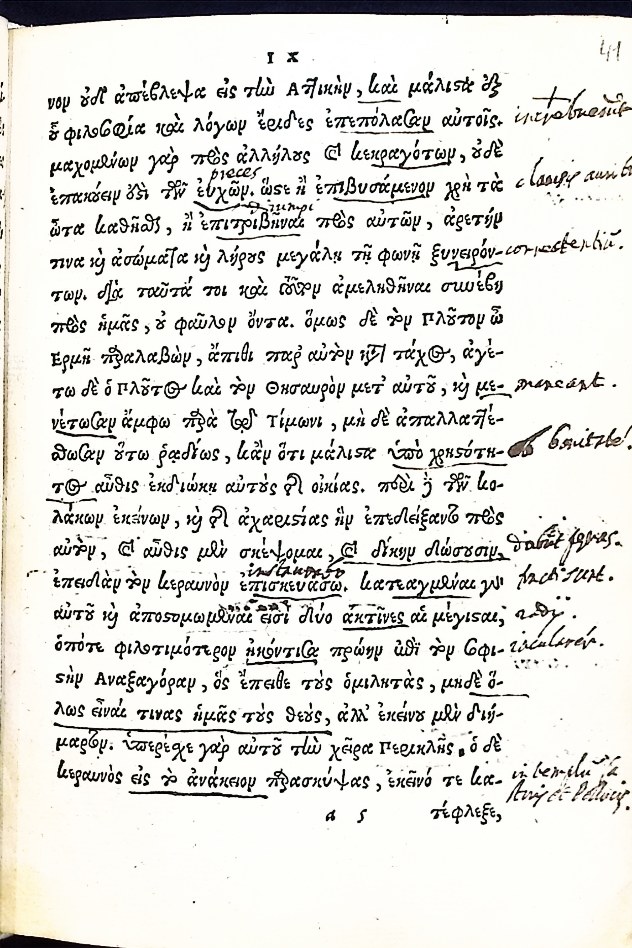 IX
41
νον οὐδὲ ἀπέβλεψα εἰς τὴν Ἀττικὴν, καὶ μάλιστα ἐξ
οὗ φιλοσοφία καὶ λόγων ἔριδες ἐπεπόλασαν αὐτοῖς.
μαχομένων γὰρ πρὸς ἀλλήλους καὶ κεκραγότων, οὐδὲ
preces
ἐπακούειν ἔστι τῶν εὐχῶν, ὥστε ἢ ἐπιβυσάμενον χρὴ τὰ
ὦτα καθῆσθαι, ἢ ἐπιτριβῆναι πρὸς αὐτῶν, ἀρετήν
τινα καὶ ἀσώματα καὶ λήρους μεγάλῃ τῇ φωνῇ ξυνειρόν-
των. διὰ ταῦτά τοι καὶ τοῦτον ἀμεληθῆναι συνέβη
πρὸς ἡμᾶς, οὐ φαῦλον ὄντα. ὅμως δὲ τὸν Πλοῦτον ὦ
Ερμῆ παραλαβὼν, ἄπιθι παρ' αὐτὸν κατὰ τάχος, ἀγέ-
τω δὲ ὁ Πλοῦτος καὶ τὸν Θησαυρὸν μετ' αὐτοῦ, καὶ με-
maneant.
νέτωσαν ἄμφω παρὰ τῷ Τίμωνι, μὴ δὲ ἀπαλλαττέ-
σθωσαν οὕτω ῥᾳδίως, κἂν ὅτι μάλιστα ὑπὸ χρηστότη-
τος αὖθις ἐκδιώκῃ αὐτοὺς τῆς οἰκίας. περὶ δὲ τῶν κο-
λάκων ἐκείνων, καὶ τῆς ἀχαριστίας ἣν ἐπεδείξαντο πρὸς
αὐτὸν, καὶ αὖθις μὲν σκέψομαι, καὶ δίκην δώσουσιν,
ἐπειδὰν τὸν κεραυνὸν ἐπισκευάσω. κατεαγμέναι γὰρ
fracti sunt.
αὐτοῦ καὶ ἀποστομωμέναι εἰσὶ δύο ἀκτῖνες αἱ μέγισται,
radij.
ὁπότε φιλοτιμότερον ἠκόντισα πρώην ἐπὶ τὸν σοφι-
στὴν Αναξαγόραν, ὃς ἔπειθε τοὺς ὁμιλητὰς, μηδὲ ὅ-
λως εἶναί τινας ἡμᾶς τοὺς θεούς, ἀλλ' ἐκείνου μὲν διή-
μαρτον. ὑπερέσχε γὰρ αὐτοῦ τὴν χεῖρα Περικλῆς. ὁ δὲ
κεραυνὸς εἰς τὸ ἀνάκειον παρασκήψας, ἐκεῖνό τε κα-
a 5 τέφλεξε,